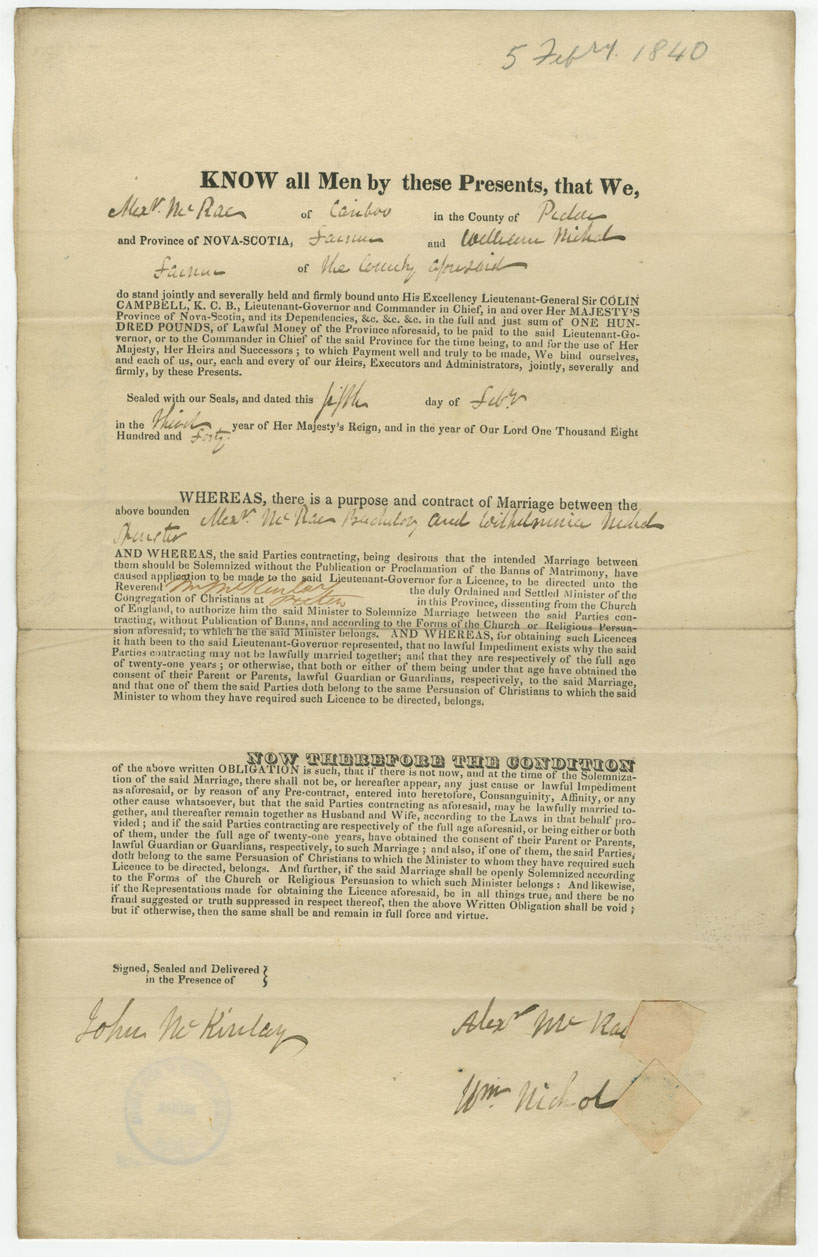 5 Febry. 1840
KNOW all Men by these Presents, that We,
Alexr. McRae of Cariboo in the County of Pictou
and Province of NOVA-SCOTIA, Farmer and William Nichol
Farmer of the County aforesaid
do stand jointly and severally held and firmly bound unto His Excellency Lieutenant-General Sir COLIN
CAMPBELL, K. C. B., Lieutenant-Governor and Commander in Chief, in and over Her MAJESTY'S
Province of Nova-Scotia, and its Dependencies, &c. &c. &c. in the full and just sum of ONE HUN-
DRED POUNDS, of Lawful Money of the Province aforesaid, to be paid to the said Lieutenant-Go-
vernor, or to the Commander in Chief of the said Province for the time being, to and for the use of Her
Majesty, Her Heirs and Successors ; to which Payment well and truly to be made, We bind ourselves,
and each of us, our, each and every of our Heirs, Executors and Administrators, jointly, severally and
firmly, by these Presents.
Sealed with our Seals, and dated this fifth day of Febr
in the third year of Her Majesty's Reign, and in the year of Our Lord One Thousand Eight
Hundred and Forty.
WHEREAS, there is a purpose and contract of Marriage between the
above bounden Alexr. McRae Bachelor and Wilhelmina Nichol
Spinster
AND WHEREAS, the said Parties contracting, being desirous that the intended Marriage between
them should be Solemnized without the Publication or Proclamation of the Banns of Matrimony, have
caused application to be made to the said Lieutenant-Governor for a Licence, to be directed unto the
Reverend Mr McKinlay the duly Ordained and Settled Minister of the
Congregation of Christians at Pictou in this Province, dissenting from the Church
of England, to authorize him the said Minister to Solemnize Marriage between the said Parties con-
tracting, without Publication of Banns, and according to the Forms of the Church or Religious Persua-
sion aforesaid, to which he the said Minister belongs. AND WHEREAS, for obtaining such Licences
it hath been to the said Lieutenant-Governor represented, that no lawful Impediment exists why the said
Parties contracting may not be lawfully married together; and that they are respectively of the full age
of twenty-one years ; or otherwise, that both or either of them being under that age have obtained the
consent of their Parent or Parents, lawful Guardian or Guardians, respectively, to the said Marriage,
and that one of them the said Parties doth belong to the same Persuasion of Christians to which the said
Minister to whom they have required such Licence to be directed, belongs.
NOW THEREFORE THE CONDITION
of the above written OBLIGATION is such, that if there is not now, and at the time of the Solemniza-
tion of the said Marriage, there shall not be, or hereafter appear, any just cause or lawful Impediment
as aforesaid, or by reason of any Pre-contract, entered into heretofore, Consanguinity, Affinity, or any
other cause whatsoever, but that the said Parties contracting as aforesaid, may be lawfully married to-
gether, and thereafter remain together as Husband and Wife, according to the Laws in that behalf pro-
vided ; and if the said Parties contracting are respectively of the full age aforesaid, or being either or both
of them, under the full age of twenty-one years, have obtained the consent of their Parent or Parents,
lawful Guardian or Guardians, respectively, to such Marriage ; and also, if one of them, the said Parties,
doth belong to the same Persuasion of Christians to which the Minister to whom they have required such
Licence to be directed, belongs. And further, if the said Marriage shall be openly Solemnized according
to the Forms of the Church or Religious Persuasion to which such Minister belongs : And likewise,
if the Representations made for obtaining the Licence aforesaid, be in all things true, and there be no
fraud suggested or truth suppressed in respect thereof, then the above Written Obligation shall be void ;
but if otherwise, then the same shall be and remain in full force and virtue.
Signed, Sealed and Delivered
in the Presence of
John McKinlay
Alexr McRae
Wm Nichol